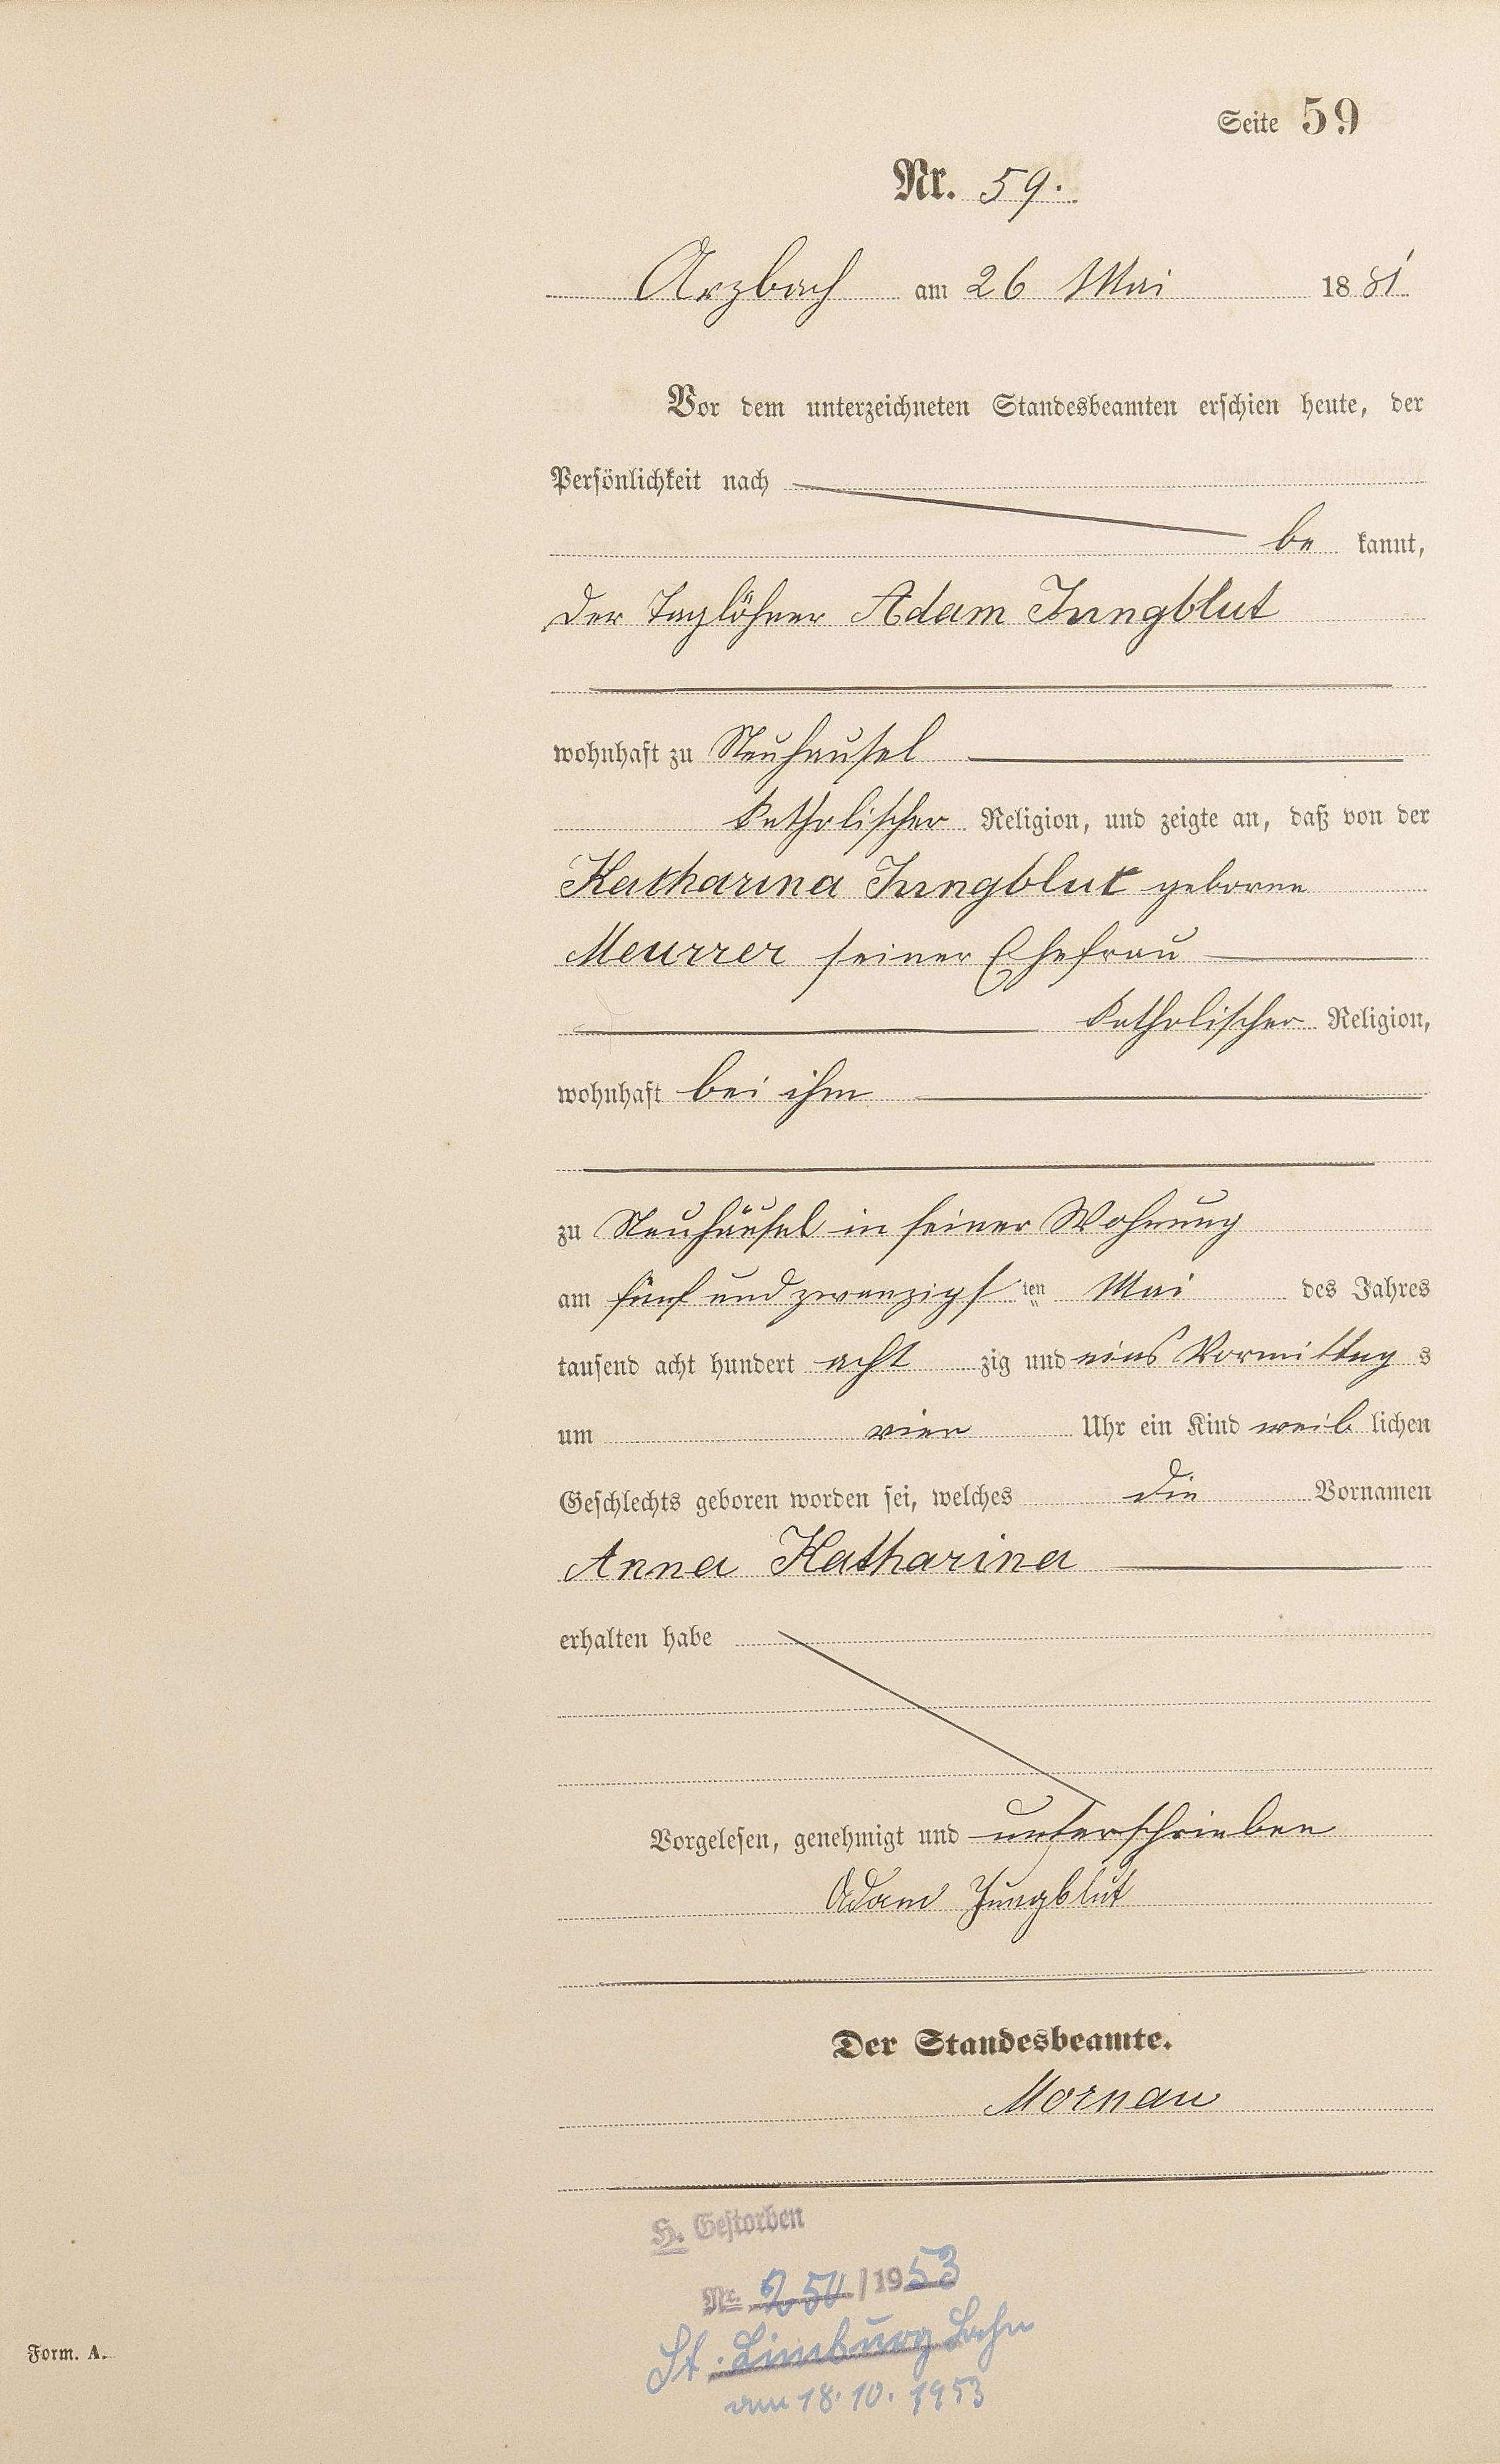 Seite 59
Nr. 59.
Arzbach am 26 Mai 1881
Vor dem unterzeichneten Standesbeamten erschien heute, der
Persönlichkeit nach
be kannt,
der Taglöhner Adam Jungblut
wohnhaft zu Neuhäusel
katholischer Religion, und zeigte an, daß von der
Katharina Jungblut geborne
Meurrer seiner Ehefrau
katholischer Religion,
wohnhaft bei ihm
zu Neuhäusel in seiner Wohnung
am fünf und zwanzigs ten Mai des Jahres
tausend acht hundert acht zig und eins Vormittag s
um vier Uhr ein Kind weib lichen
Geschlechts geboren worden sei, welches die Vornamen
Anna Katharina
erhalten habe
Vorgelesen, genehmigt und unterschrieben
Adam Jungblut
Der Standesbeamte.
Mornau
H. Gestorben
Nr. /1953
St. Limburg Lahn
am 18.10.1953
Form. A.